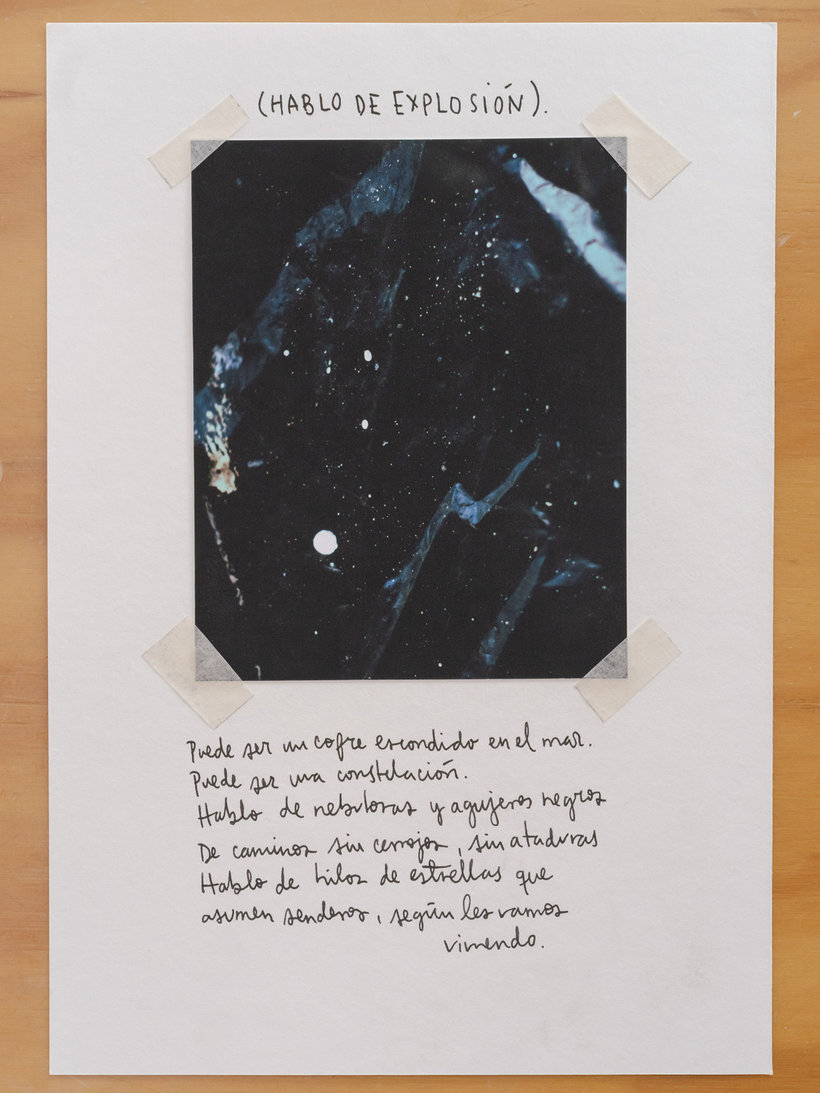 (HABLO DE EXPLOSIÓN).
Puede ser un cofre escondido en el mar.
Puede ser una constelación.
Hablo de nebulosas y agujeros negros
De caminos sin cerrojos, sin ataduras
Hablo de hilos de estrellas que
asumen senderos, según les vamos